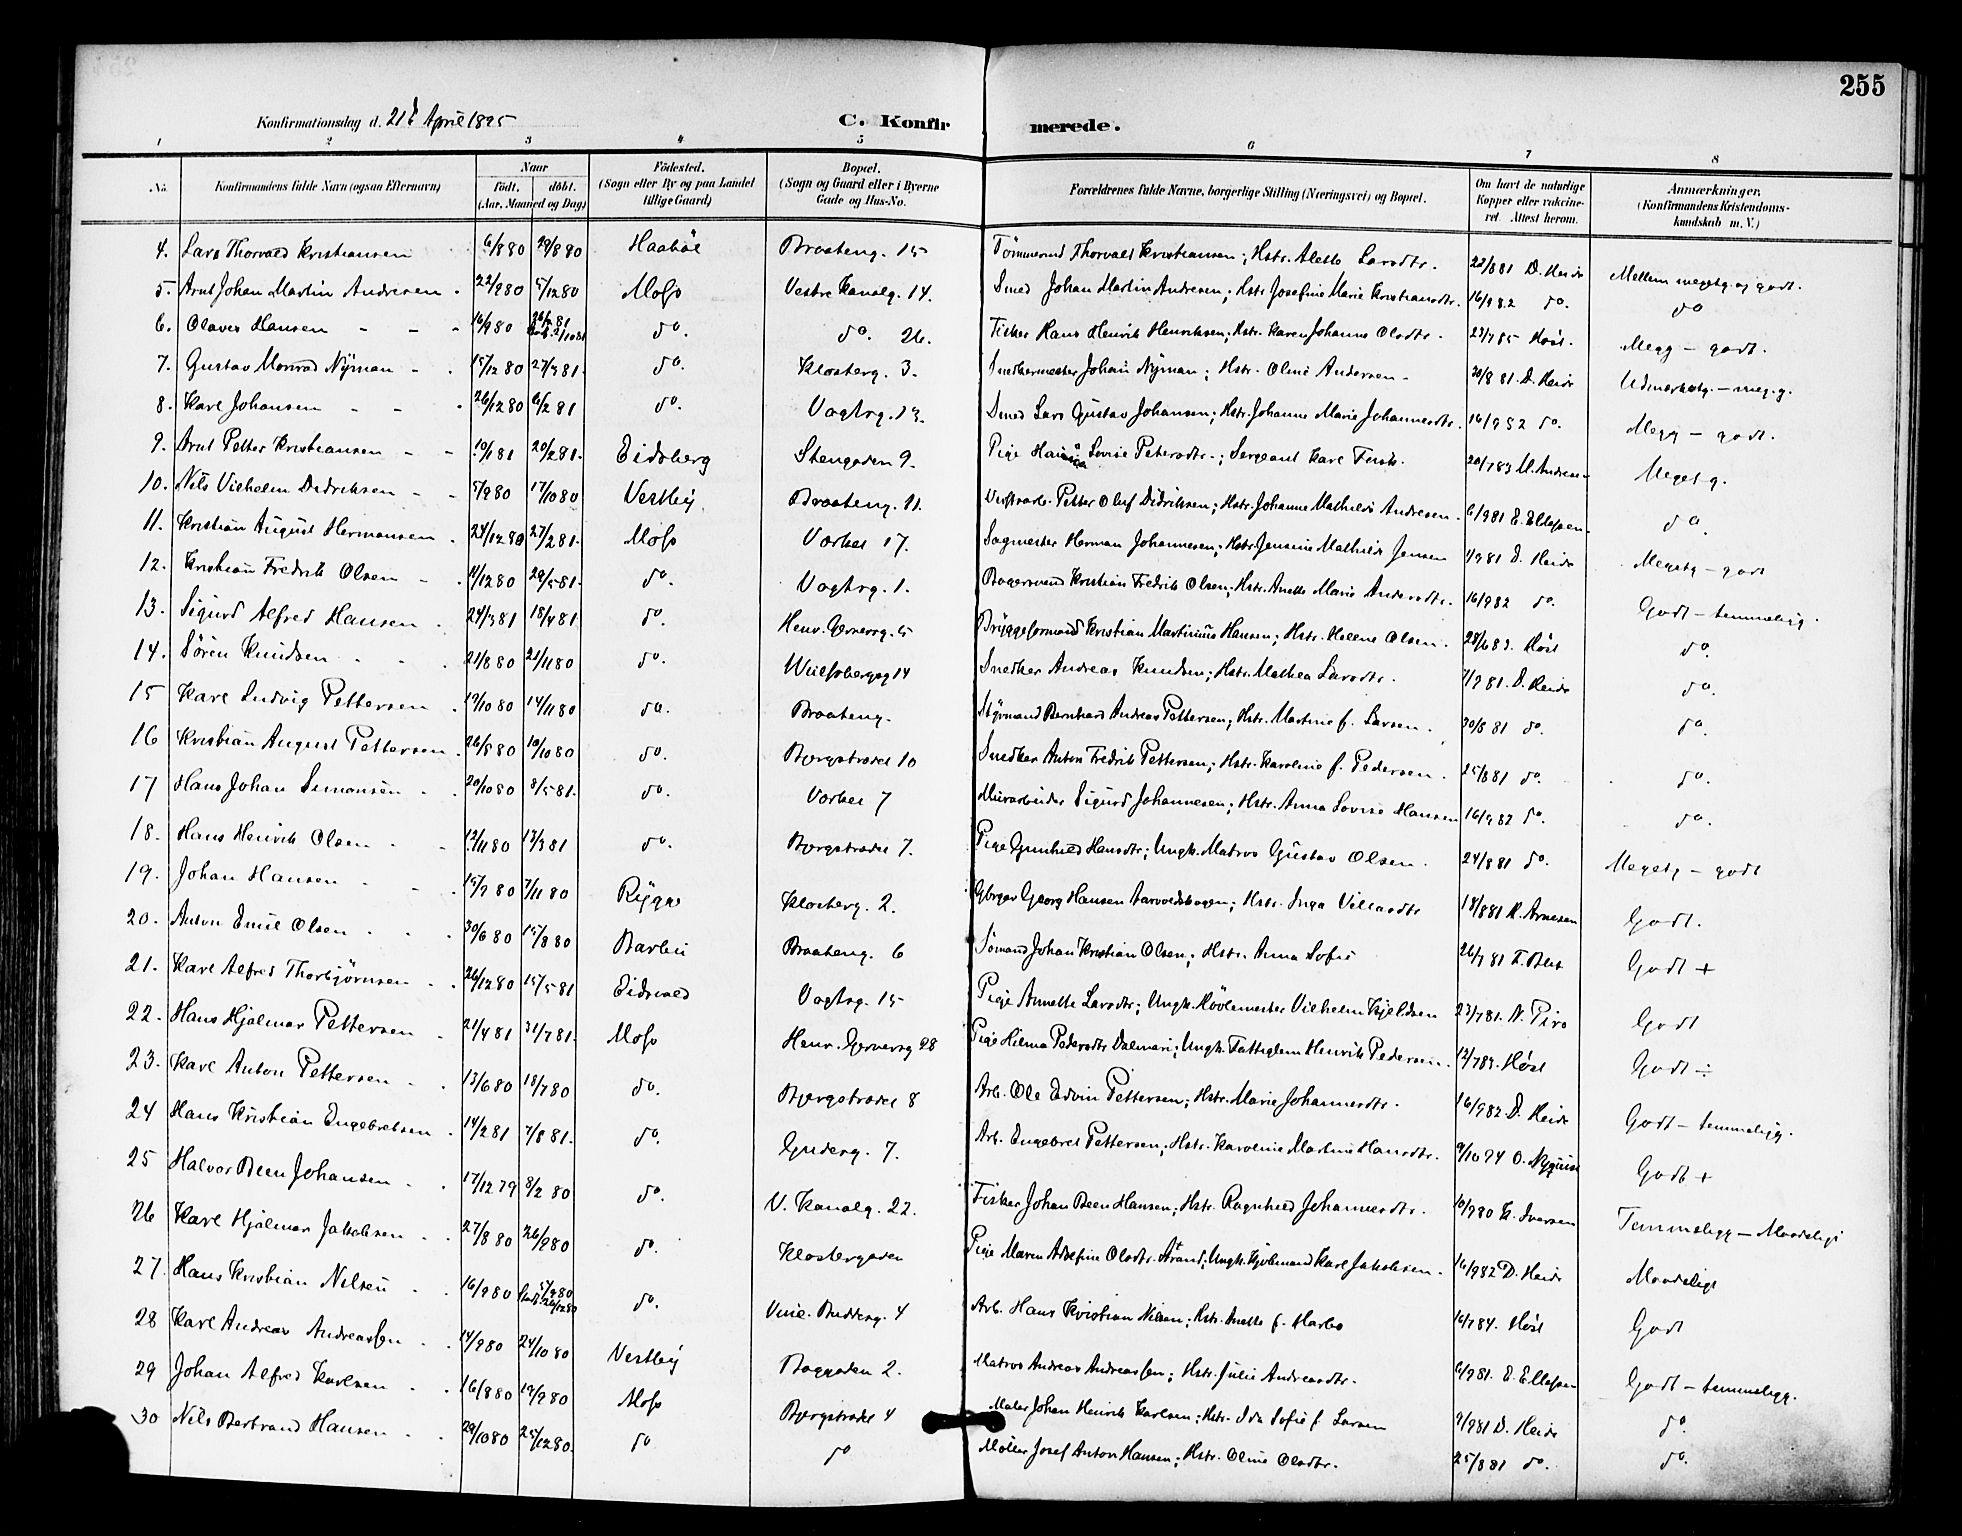 255
Konfirmationsdag d. 21de April 1895 C. Konfirmerede.
1 2 3 4 5 6 7 8
No. Konfirmandens fulde Navn (ogsaa Efternavn) Naar født. døbt. (Aar, Maaned og Dag) Fødested. (Sogn eller By og paa Landet tillige Gaard) Bopæl. (Sogn og Gaard eller i Byerne Gade og Hus-No. Forældrenes fulde Navne, borgerlige Stilling (Næringsvei) og Bopæl. Om havt de naturlige Kopper eller vakcineret. Attest herom. Anmærkninger. (Konfirmandens Kristendomskundskab m. V.)
4. Lars Thorvald Kristiansen 6/8 80 29/8 80 Haabøl Braateng. 15 Tømmermd Thorvald Kristiansen; Hstr. Alette Larsdtr. 22/8 81 D. Heide Mellem megetg. og godt.
5. Arnt Johan Martin Andresen 22/9 80 5/12 80 Moss Vestre Kanalg. 14. Smed Johan Martin Andresen; Hstr Josefine Marie Kristiansdtr. 16/9 82 do. do
6. Olaves Hansen 16/9 80 do. do. 26. Fisker Hans Henrik Henriksen; Hstr. Karen Johanne Olsdtr. 23/7 85 Høst. Megg - godt.
7. Gustav Monrad Nyman 15/12 80 27/3 81. do. Klosterg. 3. Snedkermester Johan Nyman; Hstr. Oline Andersen 30/8 81 D. Heide Udmærketg. - meg. g.
8. Karl Johansen 26/12 80 6/2 81 do. Vogtsg. 13. Smed Lars Gustav Johansen; Hstr. Johanne Marie Johannesdtr. 16/9 82 do. Megg - godt.
9. Arnt Petter Kristiansen 10/1 81 20/2 81. Eidsberg Stengaden 9. Pige Lovise Petersdtr.; Sergeant Karl 20/7 83 M. Andresen Meget g.
10. Nils Vilhelm Didriksen 5/9 80 17/10 80 Vestby Braateng. 11. Petter Oluf Didriksen; Hstr. Johanne Mathilde Andresen. 6/9 81 E. Ellefsen do.
11. Kristian August Hermansen 24/12 80 27/2 81. Moss Værket 17. Sagmester Herman Johannesen; Hstr. Jensine Mathilde Jensen 1/9 81 D. Heide Megetg - godt
12. Kristian Fredrik Olsen 11/12 80 29/5 81. do. Vogtsg. 1. Bagersvend Kristian Fredrik Olsen; Hstr. Anette Marie Andersdtr. 16/9 82 do. Godt - temmeligg.
13. Sigurd Alfred Hansen 24/3 81 18/4 81. do. Henr. Gernersg. 5 Bryggeformand Kristian Martinius Hansen; Hstr. Helene Olsen. 28/6 83. Høst do.
14. Søren Knudsen 21/8 80 21/11 80 do. Wulfsbergsg 14 Snedker Andreas Knudsen; Hstr. Mathea Larsdtr. 7/9 81. D. Heide do.
15 Karl Ludvig Pettersen 19/10 80 14/11 80 do. Braateng. Styrmand Bernhard Andreas Pettersen; Hstr. Martine f. Larsen. 30/8 81 do. do.
16 Kristian August Pettersen. 26/8 80 10/10 80 do. Bjergstrædet 10 Snedker Anton Fredrik Pettersen; Hstr. Karoline f. Pedersen. 25/8 81 do. do.
17 Hans Johan Simonsen 20/10 80 8/5 81. do. Værket 7 Murarbeider Sigurd Johannesen; Hstr. Anna Lovise Hansen 16/9 82 do. do.
18. Hans Henrik Olsen 12/11 80 13/3 81 do. Bjergstrædet 7. Pige Gunhild Hansdtr; Ungk. Matros Gustav Olsen. 24/8 81 do. Megetg - godt
19. Johan Hansen 15/9 80 7/11 80 Rygge Klosterg. 2. Georg Hansen Aarvoldskogen; Hstr. Inga 18/8 81 R. Arnesen Godt.
20. Anton Emil Olsen 30/6 80 15/8 80 Barbu Braateng. 6 Sømand Johan Kristian Olsen; Hstr. Anna Sofie 26/7 81 Godt +
21. Karl Alfred Thorbjørnsen 26/12 80 15/5 81 Eidsvold Vogtsg. 15 Pige Annette Larsdtr; Ungk. Høvlemester Vilhelm Kjeldsen 23/7 81. Godt
22. Hans Hjalmar Pettersen 21/4 81 31/7 81. Moss Henr. Gernersg 28 Pige Hilma Pedersdtr Dalmari; Ungk. Fattiglem Henrik Pedersen. 12/7 83. Høst Godt ÷
23. Karl Anton Pettersen 13/6 80 18/7 80 do. Bjergstrædet 8 Arb. Ole Edvin Pettersen; Hstr. Marie Johannesdtr. 16/9 82 D. Heide Godt - temmeligg.
24 Hans Kristian Engebretsen 14/2 81 7/8 81. do. Gudeg. 7. Arb. Engebret Pettersen; Hstr. Karoline Martine Hansdtr. 9/10 94 O. Nyquist Godt +
25 Halvor Been Johansen 17/12 79 8/2 80 do. V. Kanalg. 22. Fisker Johan Been Hansen; Hstr. Ragnhild Johannesdtr. 10/9 80 Iversen Temmeligg - Maadeligt
26 Karl Hjalmar Jakobsen 27/8 80 26/9 80 do. Klostergaden Pige Maren Adolfine Olsdtr. Strand; Ungk. Karl Jakobsen. 16/9 82 D. Heide Maadeligt
27. Hans Kristian Nilsen 16/9 80 do. Vinc. Buddesg. 4 Arb. Hans Kristian Nilsen; Hstr. Anette f. Harbo 16/7 84. Høst Godt
28 Karl Andreas Andreassen 14/9 80 24/10 80 Vestby Baggaden 2. Matros Andreas Andreassen; Hstr. Julie Andreasdtr. 6/9 81. E. Ellefsen Godt - temmeligg.
29 Johan Alfred Karlsen 16/8 80 19/9 80 Moss Bjergstrædet 4 Maler Johan Henrik Karlsen; Hstr. Ida Sofie f. Larsen 9/9 81 D. Heide do.
30 Nils Bertrand Hansen 29/10 80 25/12 80. do do Møller Josef Anton Hansen; Hstr. Oline Olsdtr. 25/8 81 do. do.